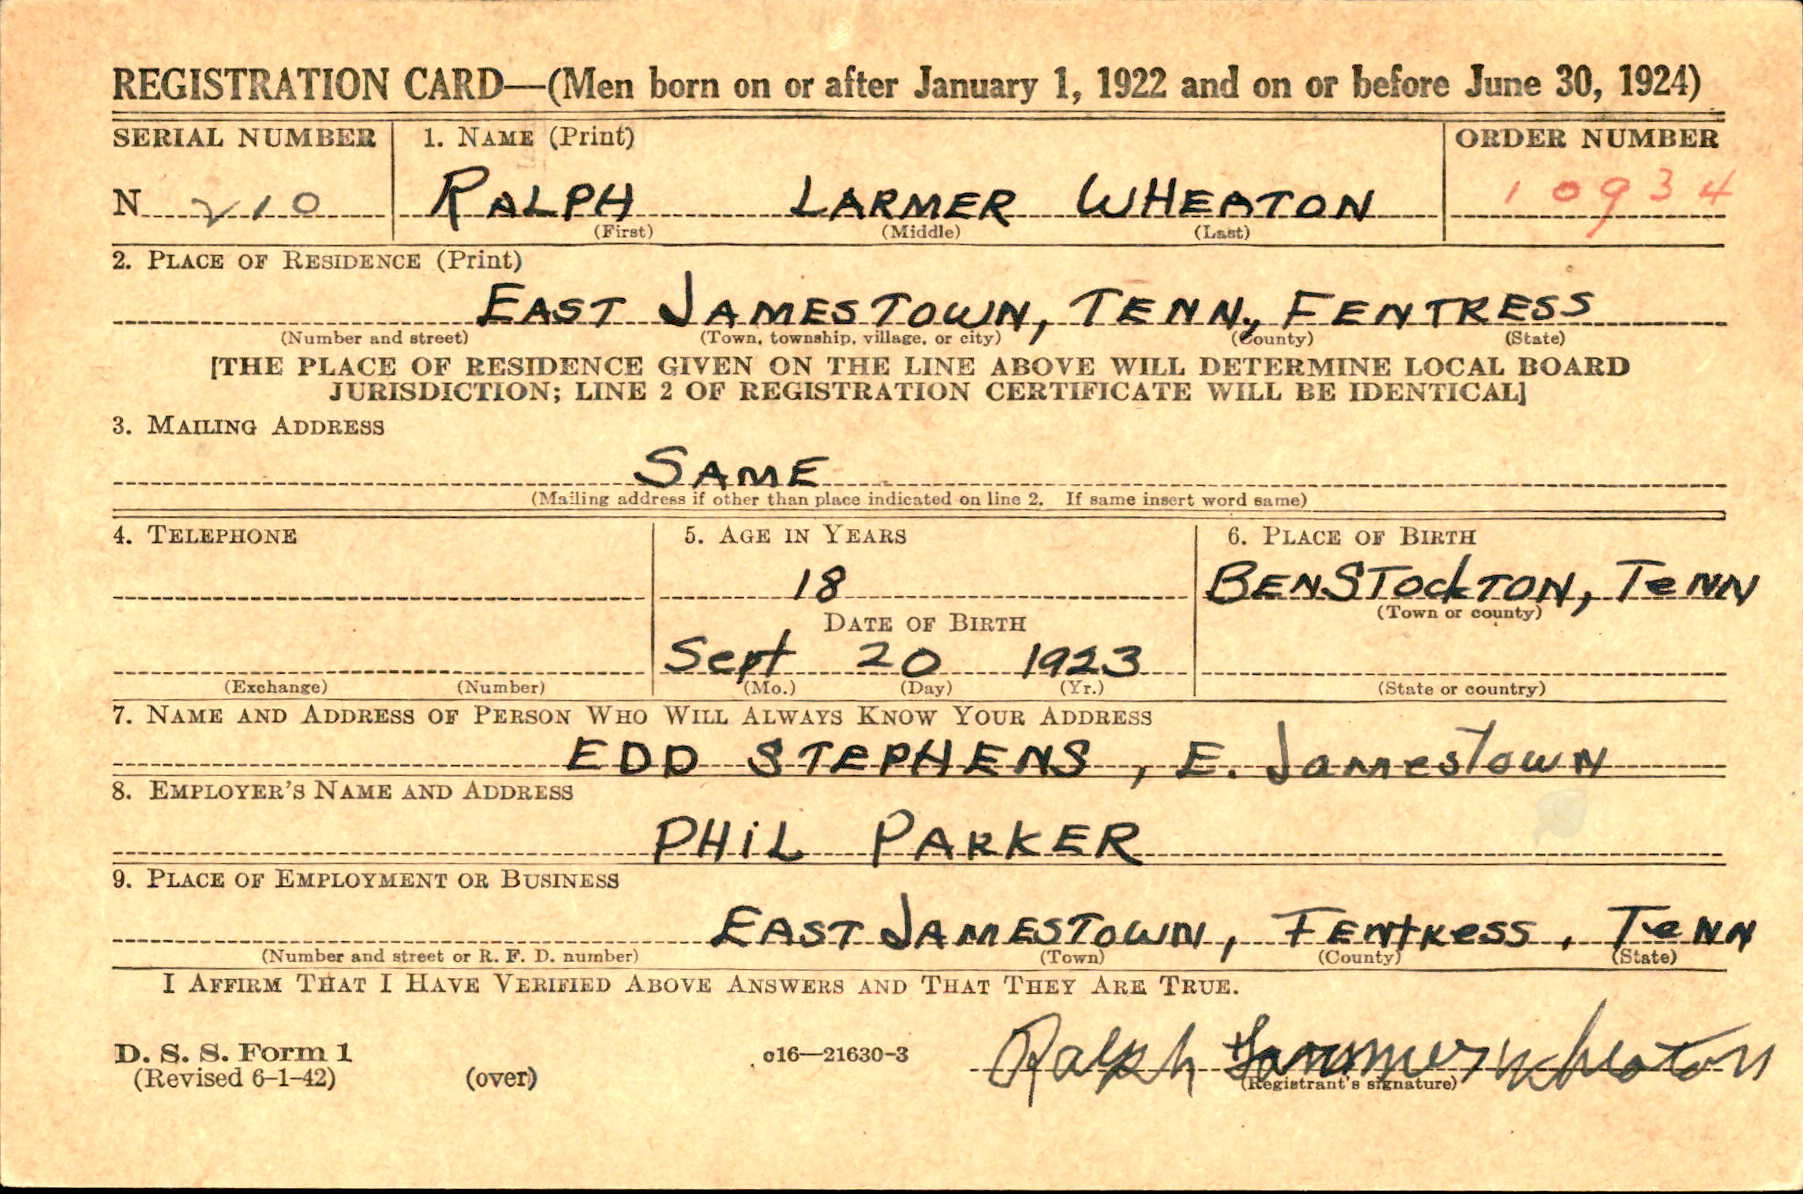 REGISTRATION CARD—(Men born on or after January 1, 1922 and on or before June 30, 1924)
SERIAL NUMBER 1. NAME (Print) ORDER NUMBER
N 210 RALPH LARMER WHEATON 10934
(First) (Middle) (Last)
2. PLACE OF RESIDENCE (Print)
EAST JAMESTOWN, TENN., FENTRESS
(Number and street) (Town, township, village, or city) (County) (State)
[THE PLACE OF RESIDENCE GIVEN ON THE LINE ABOVE WILL DETERMINE LOCAL BOARD
JURISDICTION; LINE 2 OF REGISTRATION CERTIFICATE WILL BE IDENTICAL]
3. MAILING ADDRESS
SAME
(Mailing address if other than place indicated on line 2. If same insert word same)
4. TELEPHONE 5. AGE IN YEARS 6. PLACE OF BIRTH
18 BENSTOCKTON, TeNN
(Town or county)
DATE OF BIRTH
Sept 20 1923
(Exchange) (Number) (Mo.) (Day) (Yr.) (State or country)
7. NAME AND ADDRESS OF PERSON WHO WILL ALWAYS KNOW YOUR ADDRESS
EDD STEPHENS, E. Jamestown
8. EMPLOYER'S NAME AND ADDRESS
PHIL PARKER
9. PLACE OF EMPLOYMENT OR BUSINESS
EAST JAMESTOWN, FENtRESS, TeNN
(Number and street or R. F. D. number) (Town) (County) (State)
I AFFIRM THAT I HAVE VERIFIED ABOVE ANSWERS AND THAT THEY ARE TRUE.
D. S. S. Form 1
(Revised 6-1-42) (over) c16—21630-3 Ralph Larmer Wheaton
(Registrant's signature)